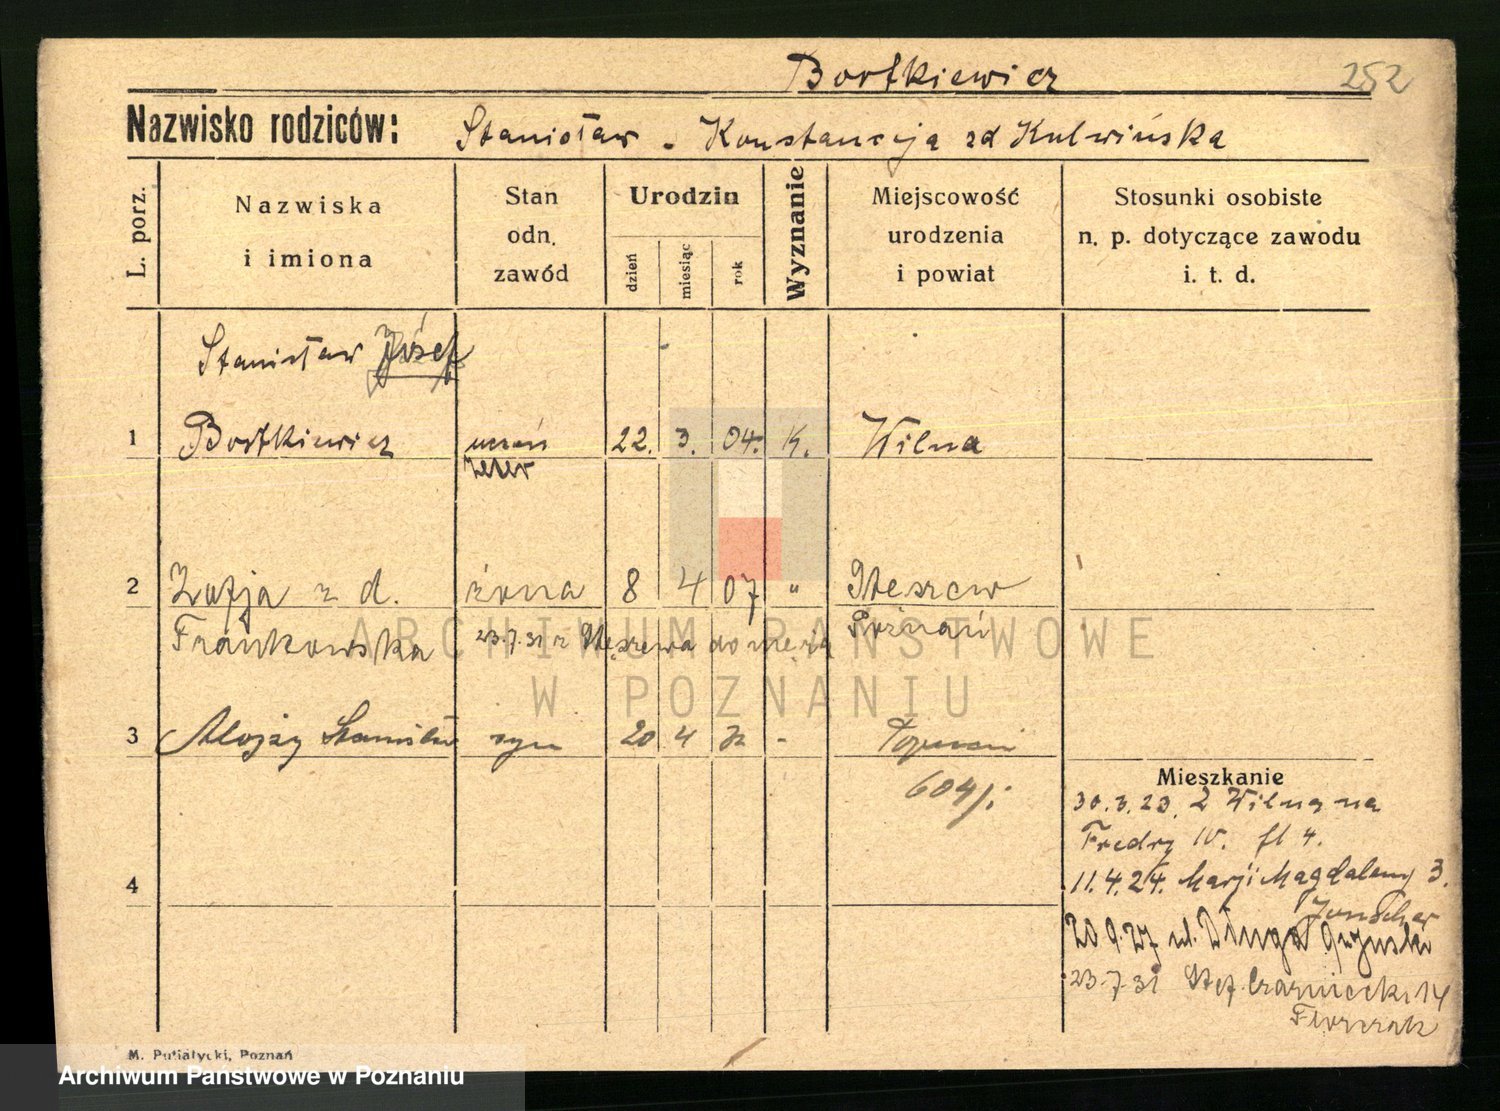 Bortkiewicz 252
Nazwisko rodziców: Stanisław - Konstancja zd Kulwińska
L. porz.
Nazwiska
i imiona
Stan
odn.
zawód
Urodzin
dzień
miesiąc
rok
Wyznanie
Miejscowość
urodzenia
i powiat
Stosunki osobiste
n. p. dotyczące zawodu
i. t. d.
Stanisław Józef
1 Bortkiewicz uczeń 22. 3. 04. K. Wilna
zecer
2 Zofja z d. żona 8 4 07 " Stęszew
Frankowska 23.7.31 z Stęszewa do męża Poznań
3 Alojzy Stanisław syn 20 4 32 - Poznań
604/i
Mieszkanie
30.3.23. z Wilna na
Fredry 10. fl 4.
4
11.4.24. Marji Magdaleny 3.
20 9.27 ul. Długa
23.7.31 Stef. Czarnieck. 14
ARCHIWUM PAŃSTWOWE
W POZNANIU
M. Putiatycki, Poznań
Archiwum Państwowe w Poznaniu